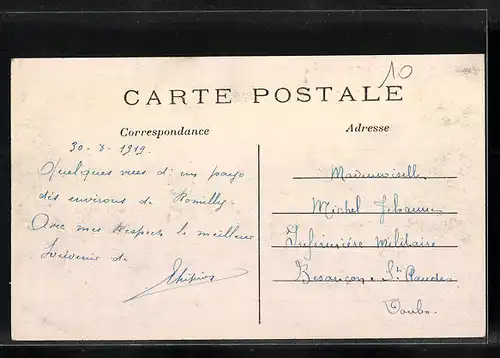 10
CARTE POSTALE
Correspondance
Adresse
30-8-1919.
Quelques vues d'un pays
des environs de Romilly.
Avec mes Respects le meilleur
Souvenir de
Mademoiselle
Michel Jehanne
Infirmière Militaire
Besançon St Claude
Doubs.